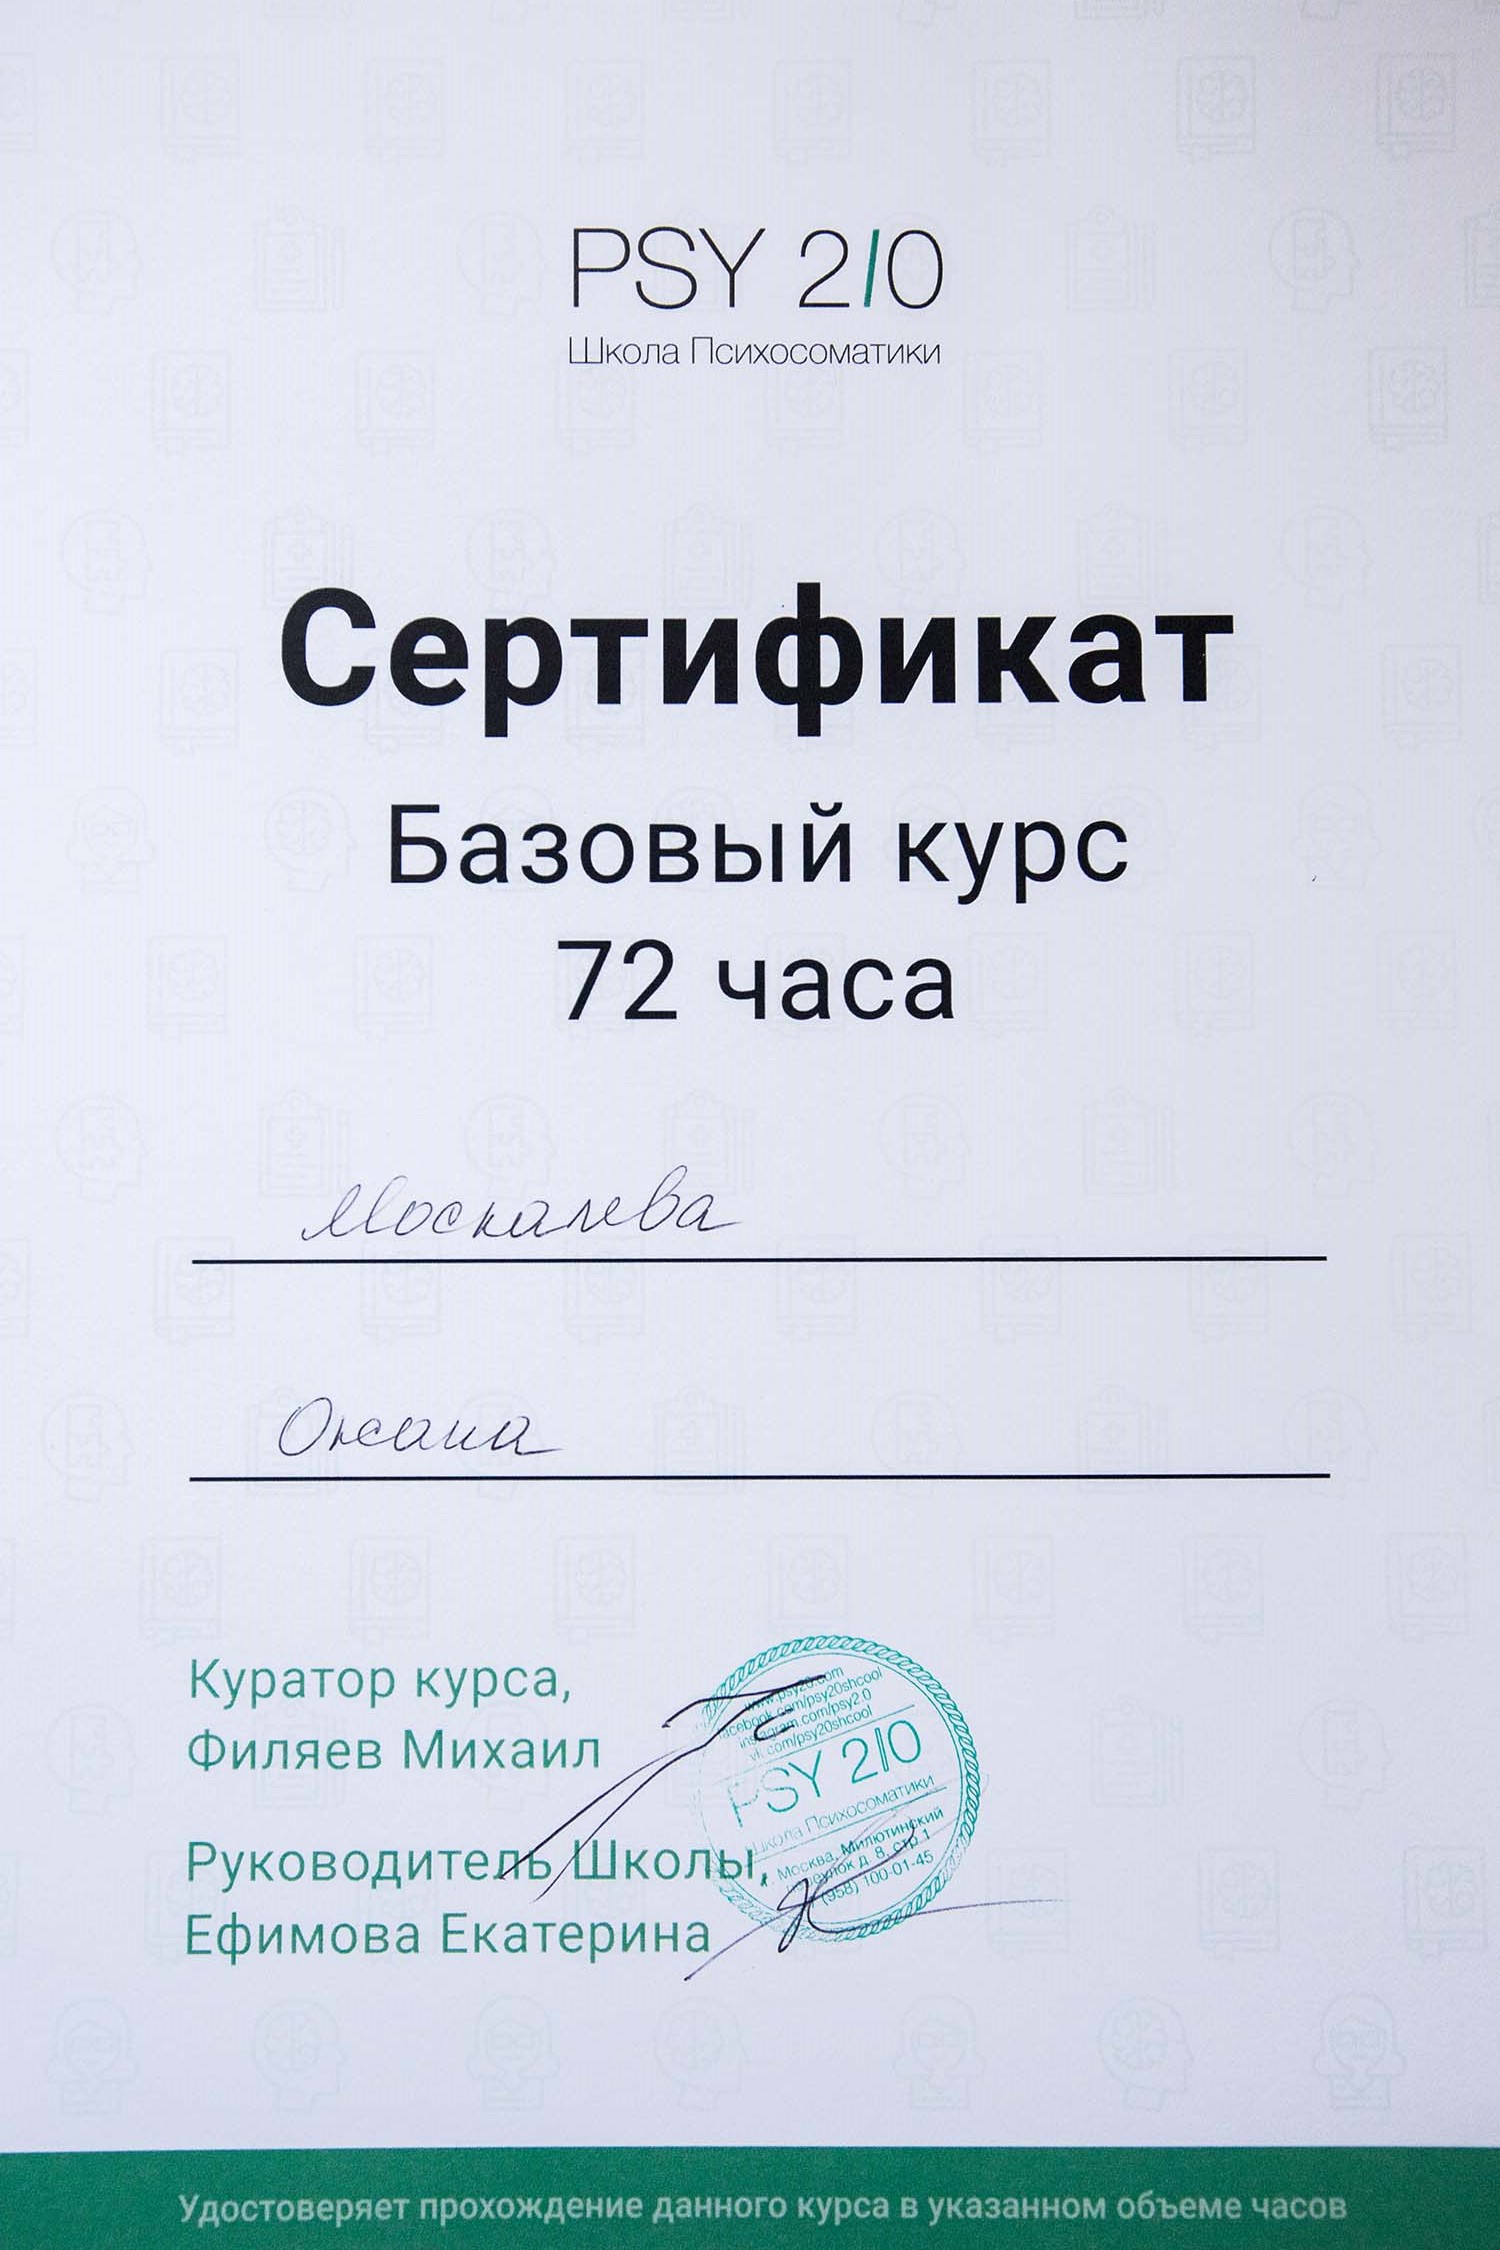 PSY 2/0
Школа Психосоматики
Сертификат
Базовый курс
72 часа
Москалева
Оксана
Куратор курса,
Филяев Михаил
Руководитель Школы,
Ефимова Екатерина
www.psy20.com
facebook.com/psy20shcool
instagram.com/psy2.0
vk.com/psy20shcool
PSY 2/0
Школа Психосоматики
г. Москва, Милютинский
переулок д. 8, стр.1
(958) 100-01-45
Удостоверяет прохождение данного курса в указанном объеме часов